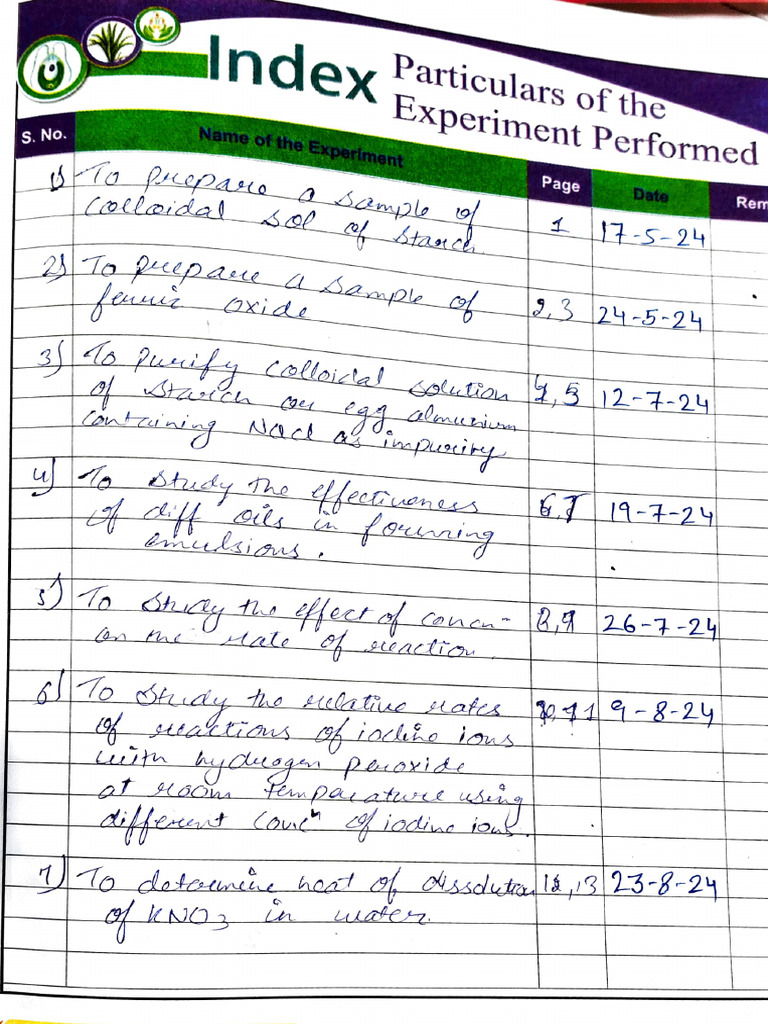 Index Particulars of the
Experiment Performed
S. No. Name of the Experiment Page Date Rem
1) To prepare a sample of
colloidal sol of starch. 1 17-5-24
2) To prepare a sample of
ferric oxide 2,3 24-5-24
3) To purify colloidal solution
of starch or egg almunium 4,5 12-7-24
containing NaCl as impurity
4) To study the effectiveness
of diff oils in forming 6,7 19-7-24
emulsions.
5) To study the effect of concn- 8,9 26-7-24
on the rate of reaction.
6) To study the relative rates 10,11 9-8-24
of reactions of iodine ions
with hydrogen peroxide
at room temparature using
different concn of iodine ions.
7) To determine heat of dissolution 12,13 23-8-24
of KNO3 in water.